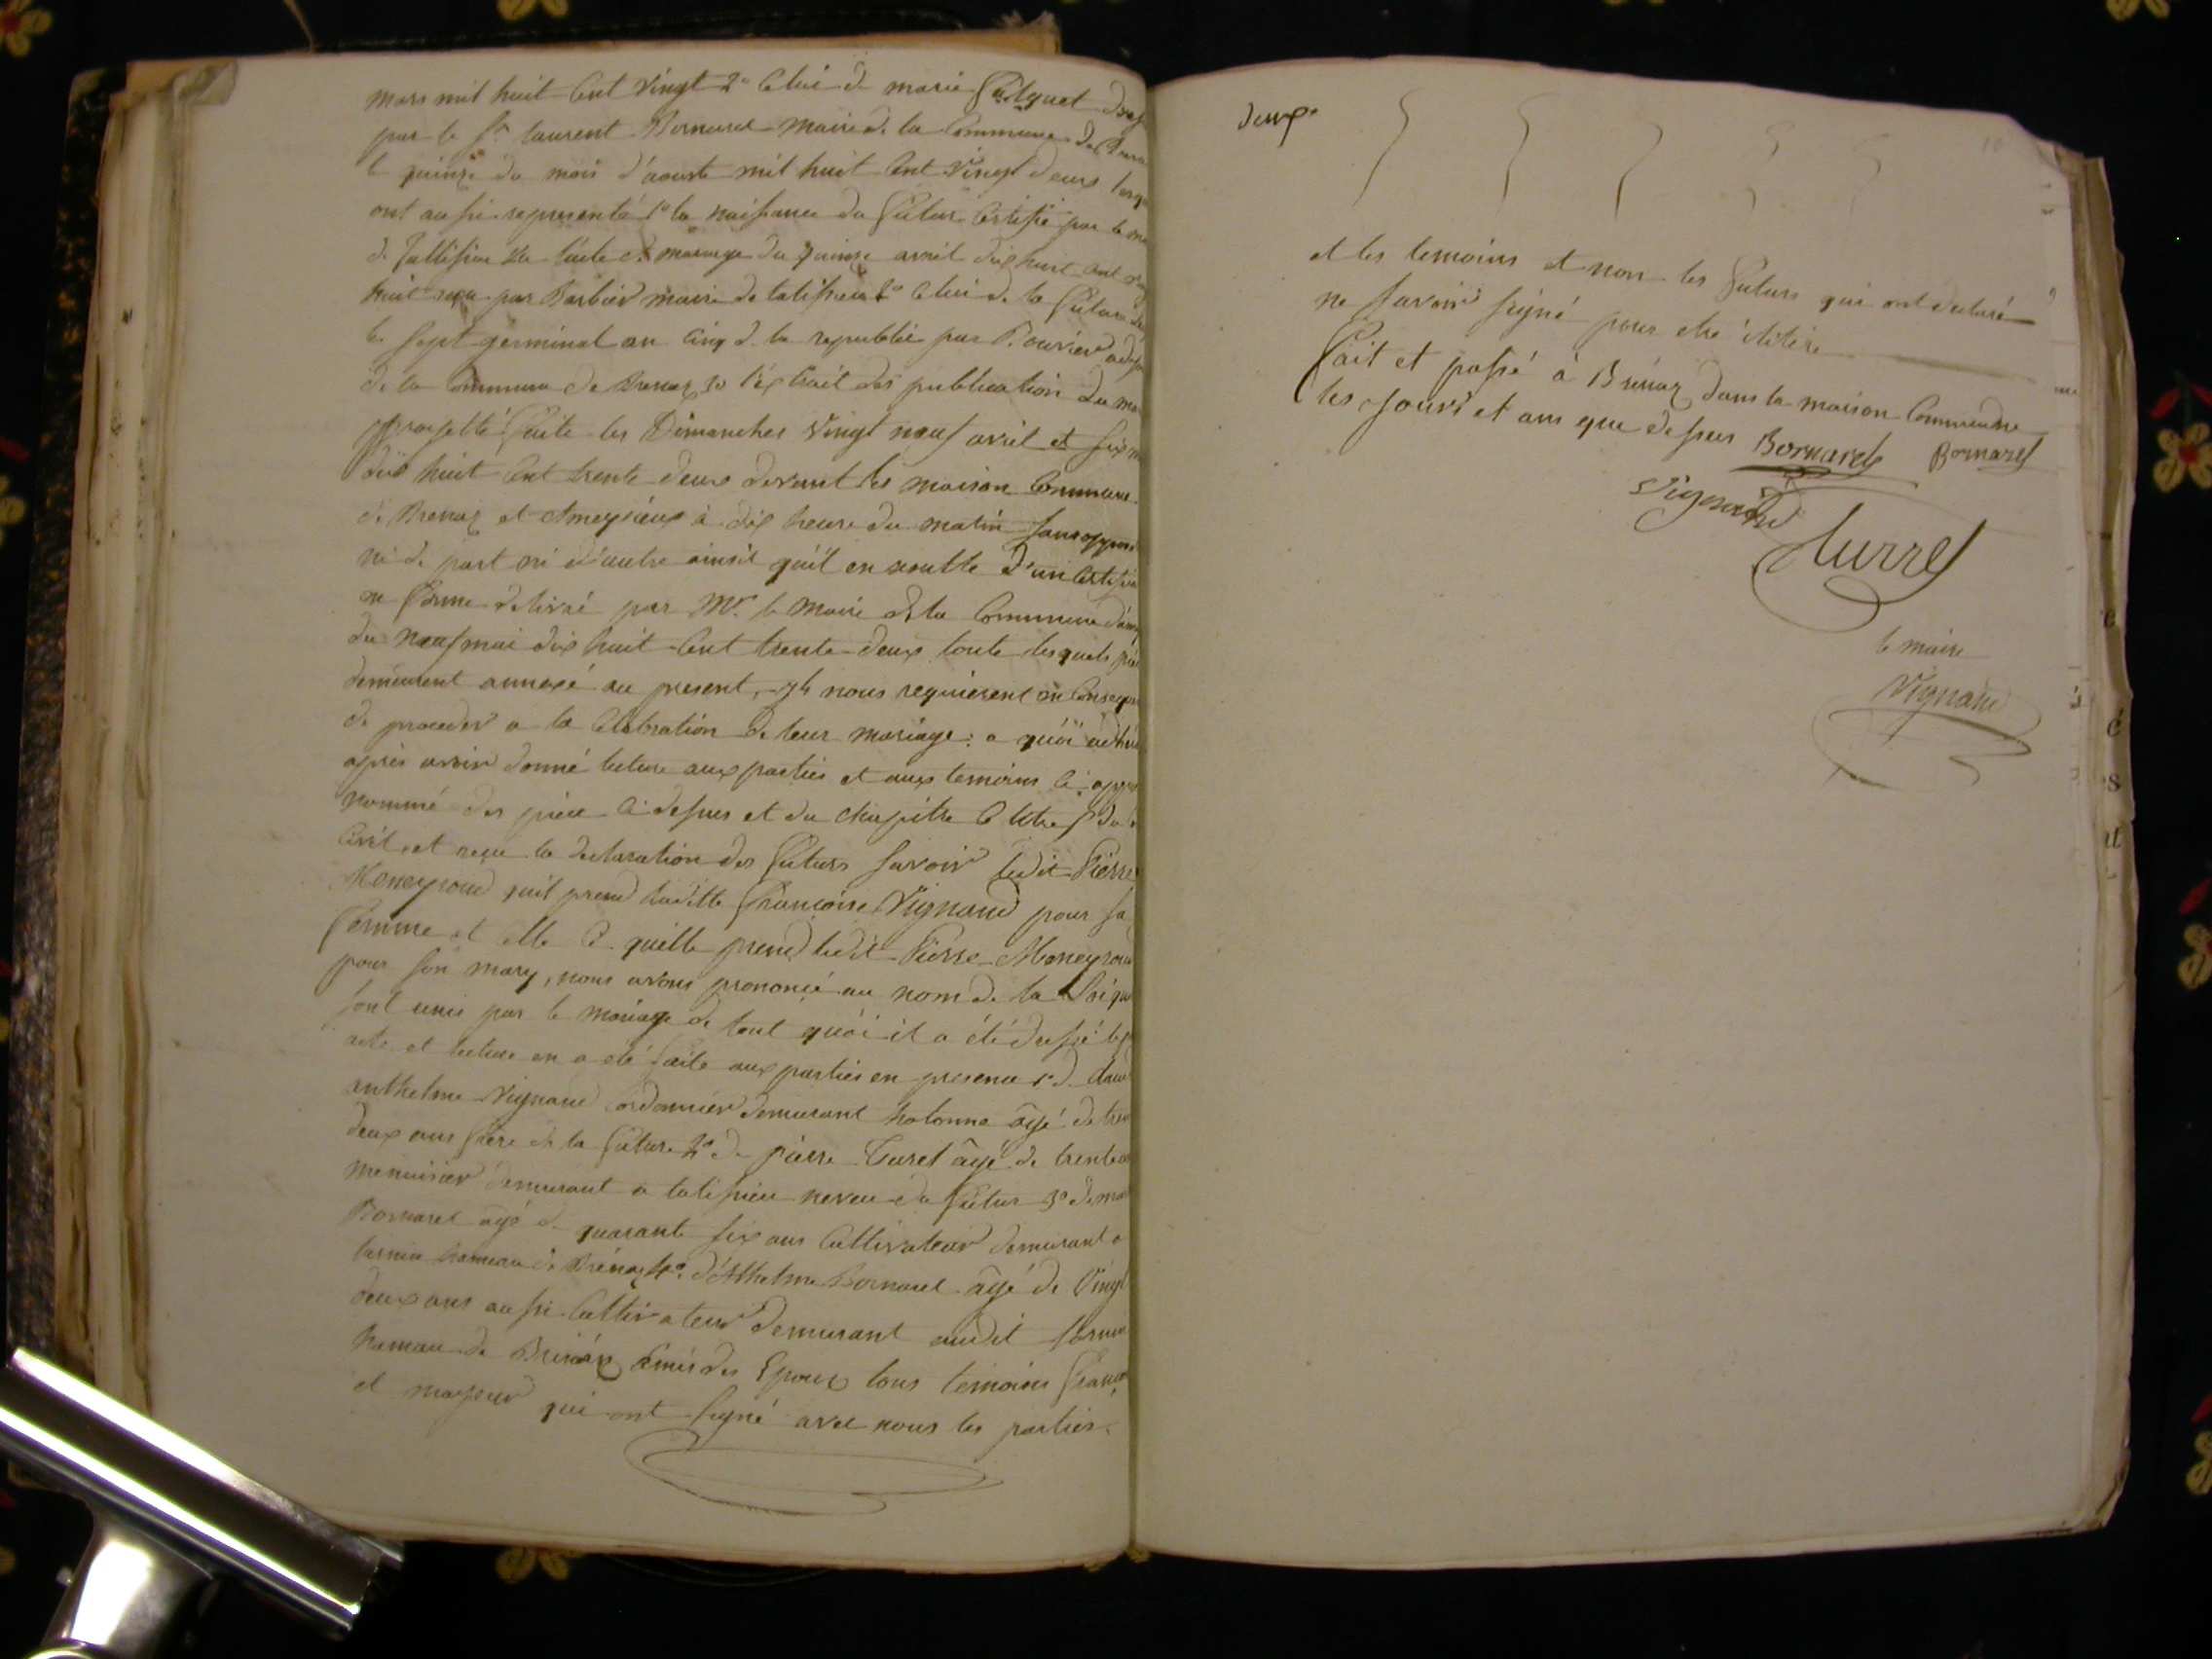 mars mil huit Cent vingt 2° Celui de marie
par le Sr. laurent Bornarel maire de la Commune de
le quinze du mois d'aoust mil huit Cent vingt deux
ont aussi representé 1° la naissance du futur Certifié par le
de tallissieu de l'acte de mariage du quinze avril dix huit Cent
huit reçu par Barbier maire de talissieu 2° Celui de la future
le sept germinal an Cinq de la republic par Bouvier
de la Commune de Brenaz 3° l'éxtrait des publication du
projetté faite les Dimanches vingt neuf avril et six
dix huit Cent trente deux devant les maison Commune
de Brenaz et Ameyzieux à dix heure du matin sans
ni de part ni d'autre ainsit qu'il en resulte d'un
en forme delivré par Mr. le maire de la Commune
du neuf mai dix huit Cent trente deux toute lesquels
demeurent annexé au present, ils nous requierent en
de proceder a la Celebration de leur mariage: a quoi
après avoir donné lecture aux parties et aux temoins Ci
nommé des pièce Ci dessus et du chapitre 6 titre 5 du
Civil, et reçu la declaration des futurs savoir ledit Pierre
Meneyroud quil prend laditte françoise Vignaud pour sa
femme et elle quelle prend ledit Pierre Meneyroud
pour son mary, nous avons prononcé au nom de la Loi
sont unis par le mariage de tout quoi il a été dressé
acte et lecture en a été faite aux parties en presence 1° d
anthelme Vignaud Cordonnier demeurant hotonne âgé de
deux ans frère de la future 2° de pierre Turel âgé de
menuisier demeurant a talissieu neveu du futur 3° de
Bornarel âgé de quarante six ans Cultivateur demeurant a
hameau de Brénaz 4° d'Athelme Bornarel âgé de Vingt
deux ans aussi Cultivateur demeurant audit
hameau de Brénaz amis des Epoux tous temoins
et majeur qui ont signé avec nous les parties
deux
et les temoins et non les futurs qui ont declaré
ne savoir signé pour etre ilitéré
fait et passé à Brénaz dans la maison Commune
les jours et ans que dessus Bornarel Bornarel
Vignaud
turrel
le maire
Vignaud